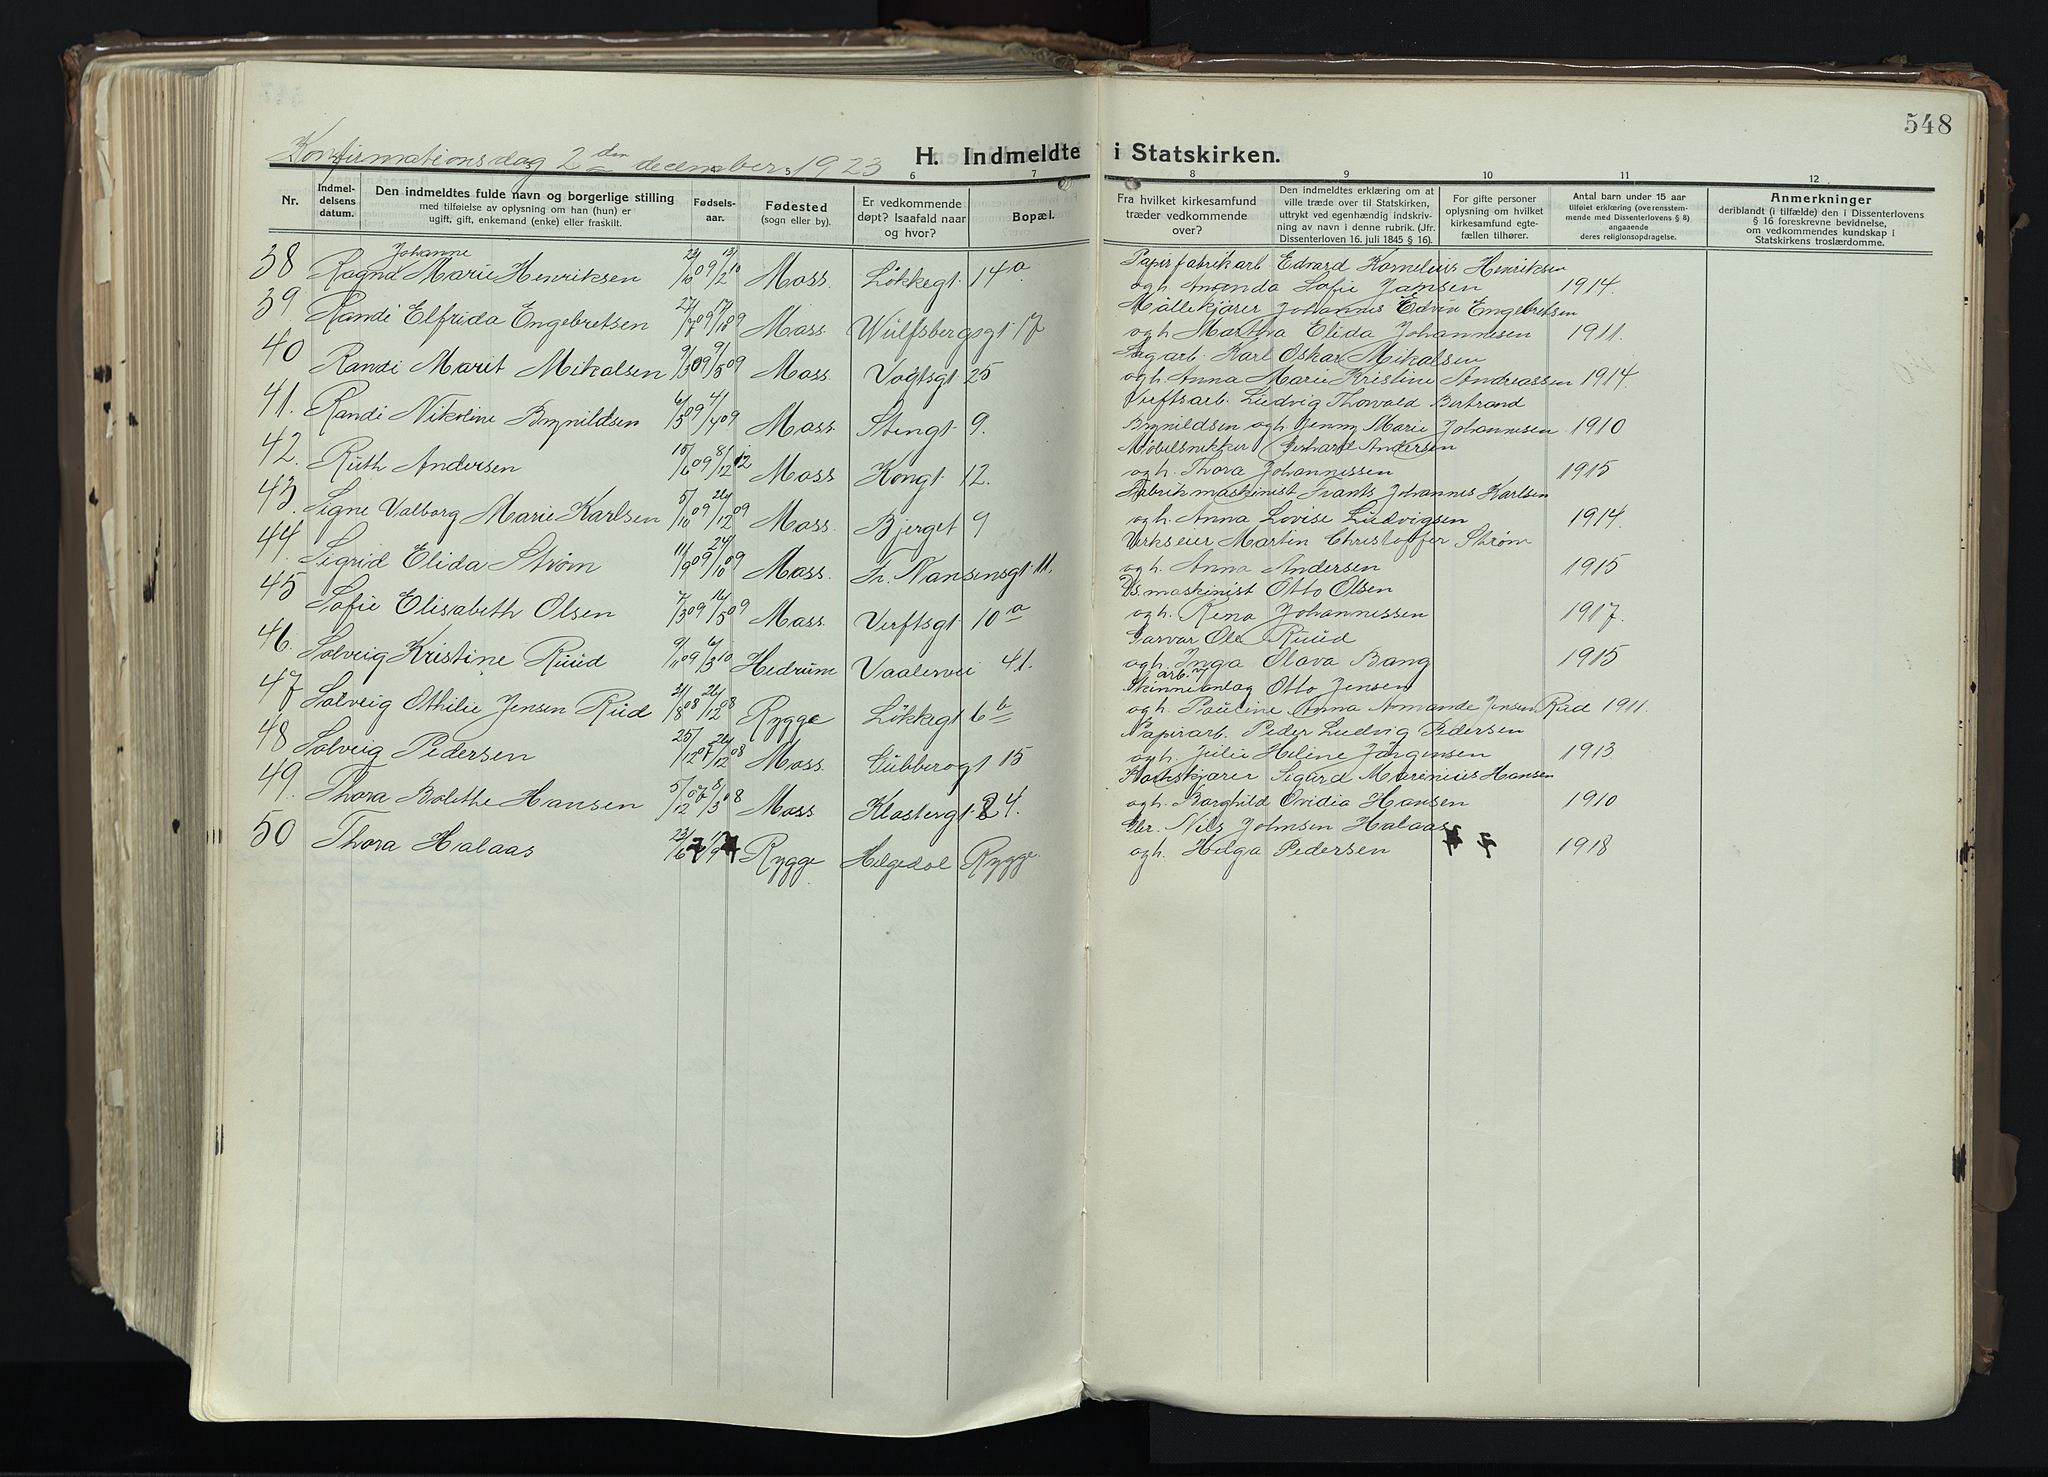 548
Konfirmationsdag 2den december 1923
H. Indmeldte i Statskirken.
5 6 7 8 9 10 11 12
Nr.
Indmeldelsens datum.
Den indmeldtes fulde navn og borgerlige stilling
med tilføielse av oplysning om han (hun) er
ugift, gift, enkemand (enke) eller fraskilt.
Fødselsaar.
Fødested
(sogn eller by).
Er vedkommende
døpt? Isaafald naar
og hvor?
Bopæl.
Fra hvilket kirkesamfund
træder vedkommende
over?
Den indmeldtes erklæring om at
ville træde over til Statskirken,
uttrykt ved egenhændig indskriv-
ning av navn i denne rubrik. (Jfr.
Dissenterloven 16. juli 1845 § 16).
For gifte personer
oplysning om hvilket
kirkesamfund egte-
fællen tilhører.
Antal barn under 15 aar
tilføiet erklæring (overensstem-
mende med Dissenterlovens § 8)
angaaende
deres religionsopdragelse.
Anmerkninger
deriblandt (i tilfælde) den i Dissenterlovens
§ 16 foreskrevne bevidnelse,
om vedkommendes kundskap i
Statskirkens troslærdomme.
38 Ragna Johanne Marie Henriksen 23/10 09 13/2 10 Moss Løkkegt 14a Papirfabrikarb Edvard Kornelius Henriksen
og h. Amanda Sofie Jansen 1914.
39 Randi Elfrida Engebretsen 27/7 09 17/10 09 Moss Wulfsbergsgt 17 Møllekjører Johannes Edvin Engebretsen
og h. Martha Elida Johannesen 1911.
40 Randi Marit Mikalsen 9/3 09 9/5 09 Moss Vogtsgt 25 Sagarb. Karl Oskar Mikalsen
og h. Anna Marie Kristine Andreassen 1914.
41. Randi Nikoline Brynildsen 6/3 09 4/4 09 Moss Stengt 9. Verftsarb. Ludvig Thorvald Bertrand
Brynildsen og h. Jenny Marie Johannesen 1910
42. Ruth Andersen 15/6 09 8/12 12 Moss Kongt 12. Møbelsnikker Gerhard Andersen
og h. Thora Johannessen 1915
43. Signe Valborg Marie Karlsen 5/10 09 26/12 09 Moss Bjerget 9 Fabrikmaskinist Frants Johannes Karlsen
og h. Anna Lovise Ludvigsen 1914.
44. Sigrid Elida Strøm 11/9 09 24/10 09 Moss Fr. Nansensgt 11. Verkseier Martin Christoffer Strøm
og h. Anna Andersen 1915
45 Sofie Elisabeth Olsen 7/3 09 16/5 09 Moss Verftsgt 10a Ds. maskinist Otto Olsen
og h. Rena Johannessen 1917.
46. Solveig Kristine Ruud 9/11 09 6/3 10 Hedrum Vaalervei 41. Garvar Ole Ruud
og h. Inga Olava Bang 1915
47 Solveig Othilie Jensen Rud 21/8 08 26/12 08 Rygge Løkkegt 6b Skinnearb. Otto Jensen
og h. Pauline Anna Amande Jensen Rud 1911.
48 Solveig Pedersen 25/12 07 26/12 08 Moss Gubberogt 15 Papirarb. Peder Ludvig Pedersen
og h. Julie Heline Jørgensen 1913.
49. Thora Bolethe Hansen 5/12 07 8/3 08 Moss Klostergt 24. Sigurd Marinius Hansen
og h. Borghild Ovidia Hansen 1910
50 Thora Halaas 23/6 19/9 Rygge Helgedal Rygge. Gbr. Nils Johnsen Halaas
og h. Helga Pedersen 1918